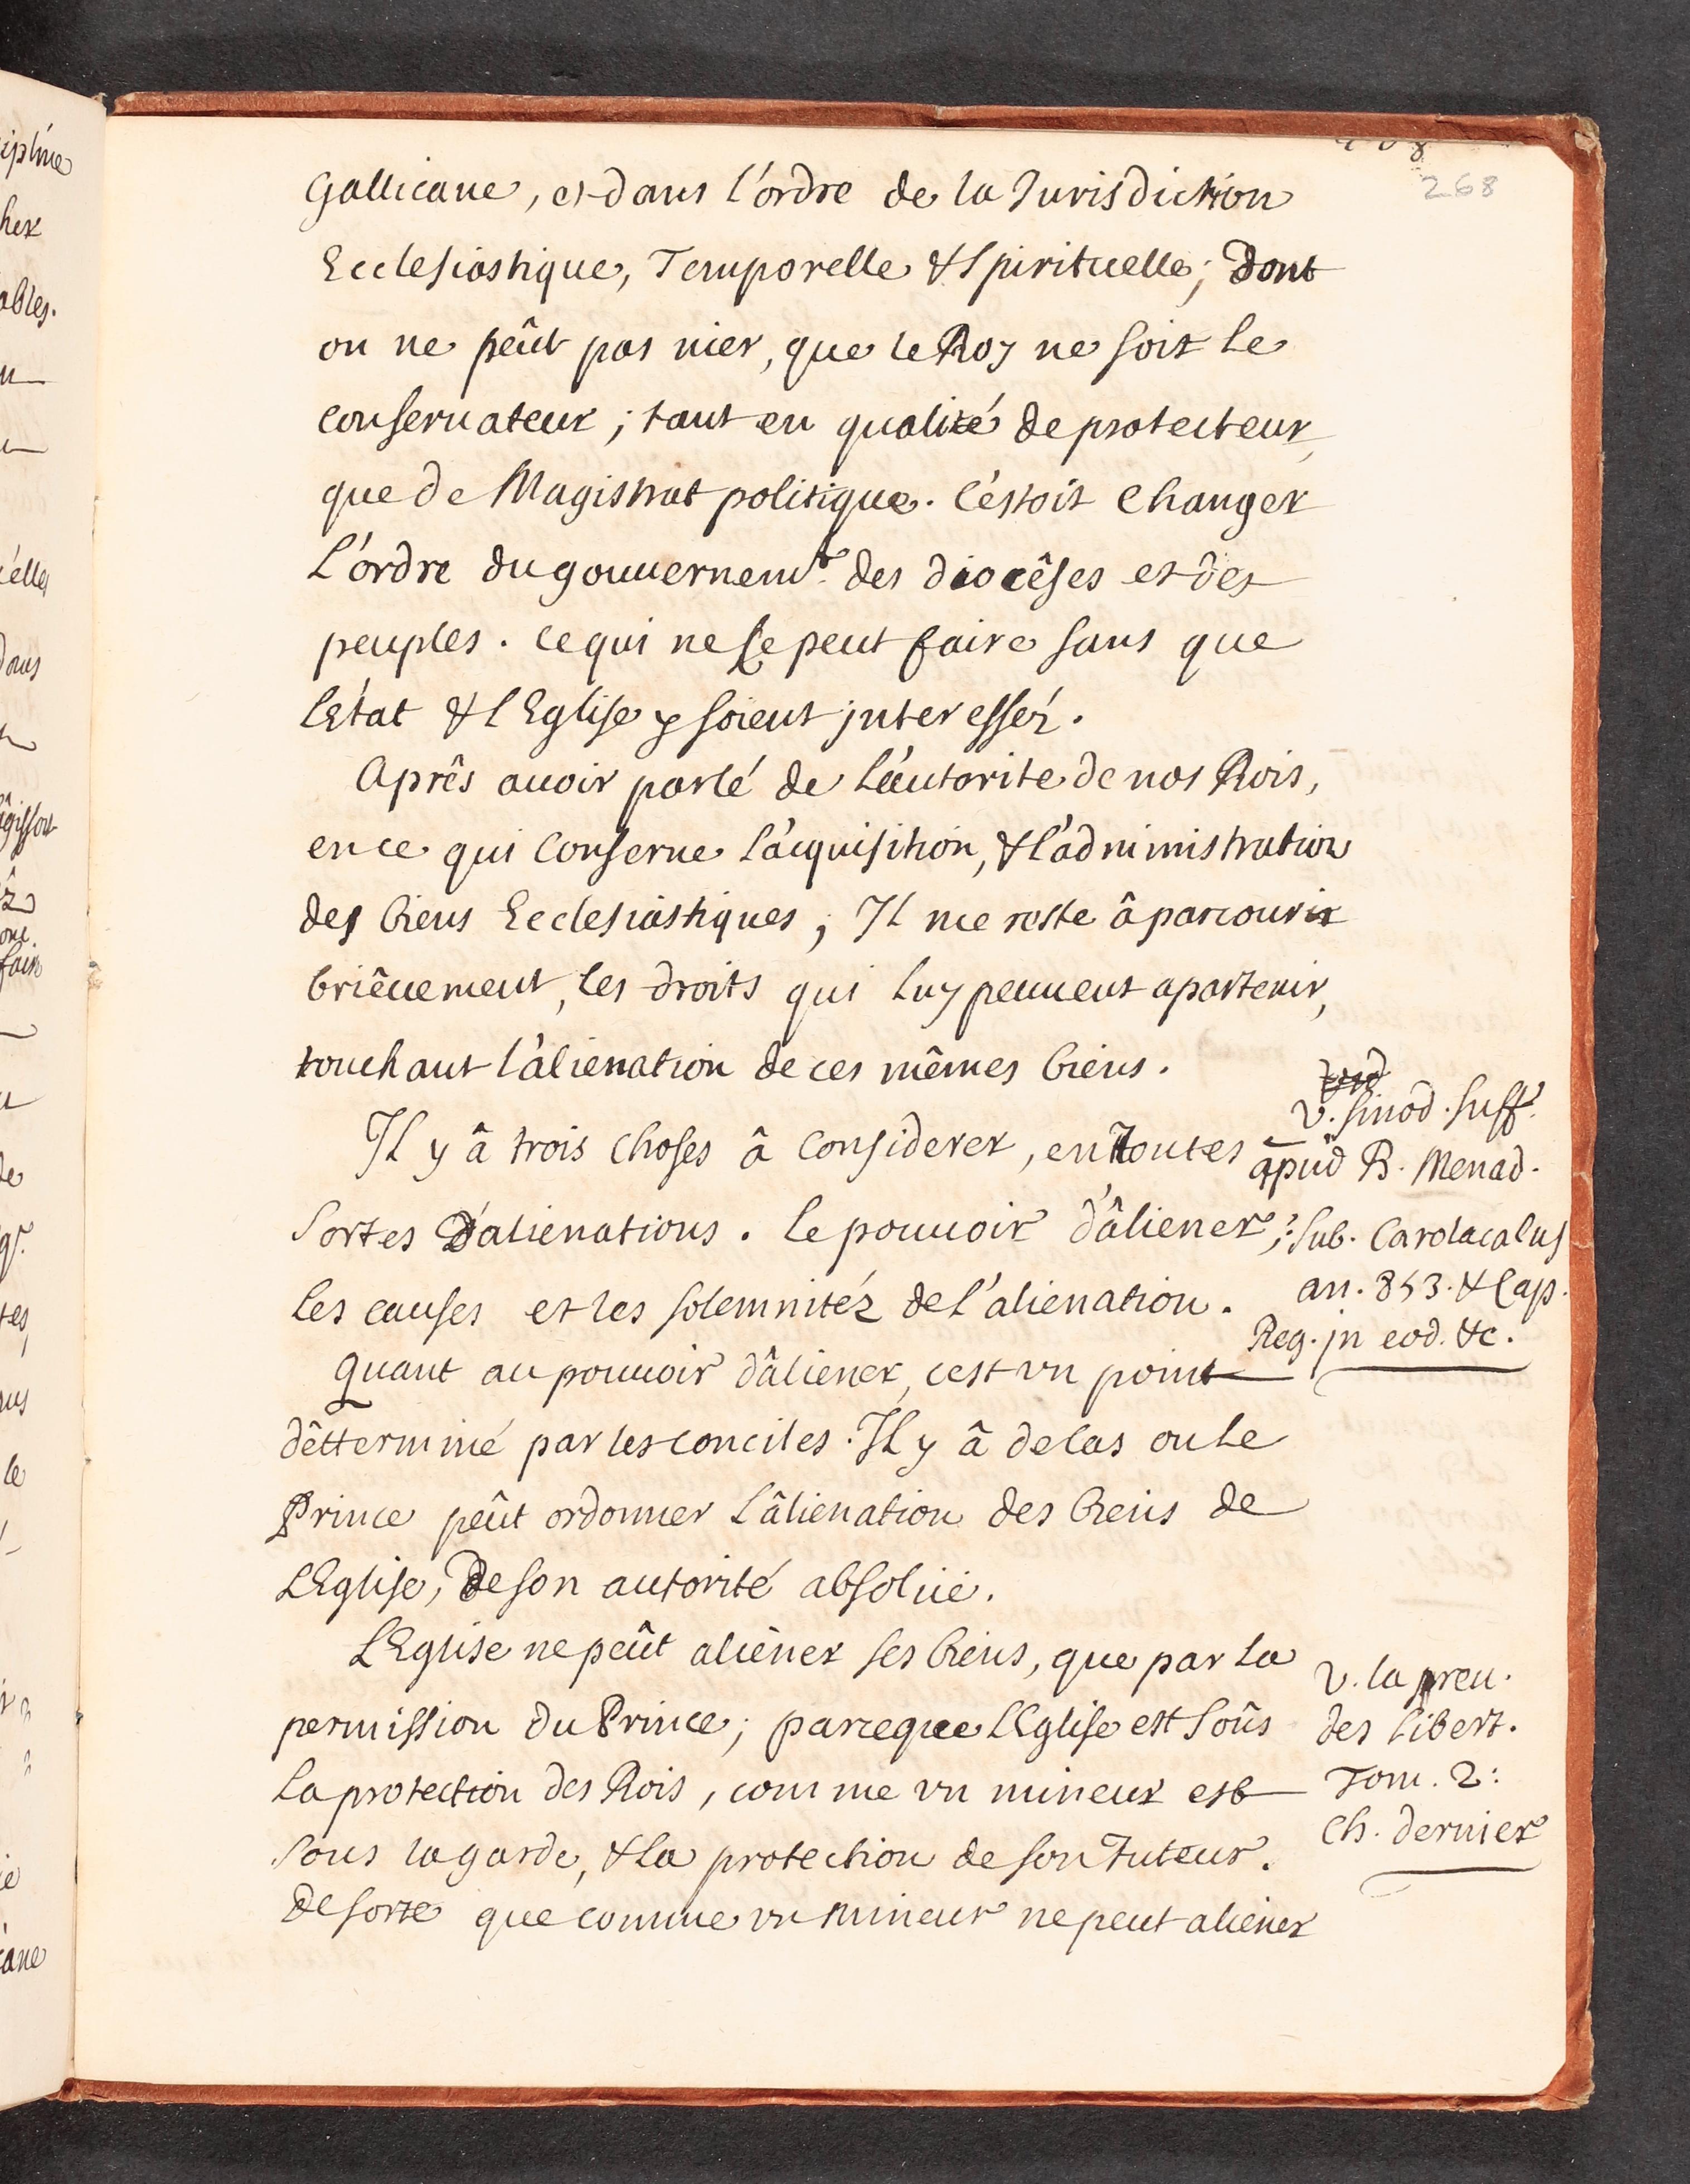 268
Gallicane, et dans l'ordre de la Jurisdiction
Ecclesiastique, Temporelle & Spirituelle; dont
on ne pêut pas nier, que le Roy ne soit le
conseruateur; tant en qualité de protecteur,
que de Magistrat politique. C'éstoit changer
l'ordre du gouuernemt. des diocêses et des
peuples. ce qui ne se peut faire sans que
l'Etat & l'Eglise y soient jnteressez.
Aprês auoir parlé de l'autorite de nos Rois,
en ce qui conserne l'acquisition, & l'administration
des biens Ecclesiastiques, Il me reste â parcourir
briêuement, les droits qui luy peuuent apartenir,
touchant l'alienation de ces mêmes biens.
Il y â trois choses â considerer, en toutes
sortes d'alienations. le pouuoir d'âliener;
les causes et les solemnitéz de l'alienation.
Quant au pouuoir d'âliener, c'est vn point
dêtterminé par les conciles. Il y â de cas ou le
Prince pêut ordonner l'âlienation des biens de
l'Eglise, de son autorité absolüe.
L'Eglise ne pêut aliêner ses biens, que par la
permission du Prince; parceque l'Eglise est soûs
la protection des Rois, comme vn mineur est
sous la garde, & la protection de son Tuteur.
de sorte que comme vn mineur ne peut aliener
v. sinod. suff.
apud B. Menad.
sub. Carolacaluf
an. 853. & Cap.
Reg. jn eod. &c.
v. la preu.
des libert.
Tom. 2:
Ch. dernier